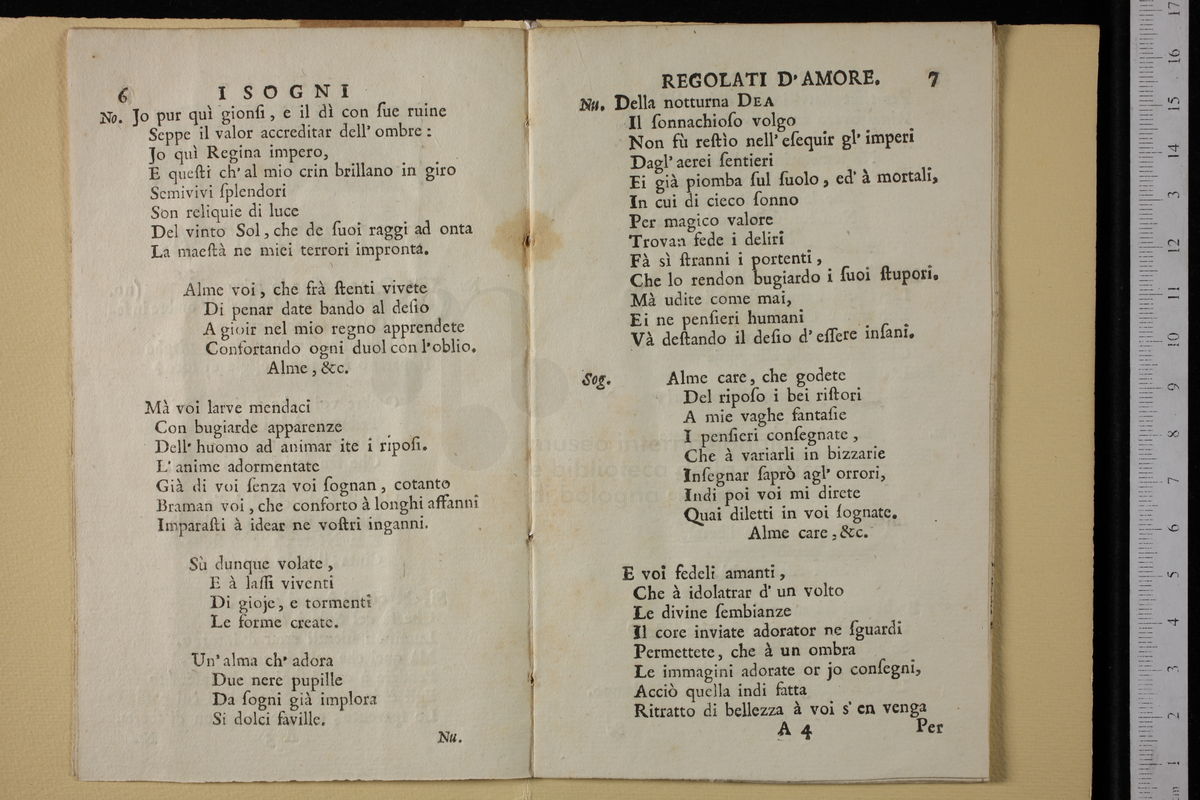 6 I SOGNI
No. Jo pur quì gionſi, e il dì con ſue ruine
Seppe il valor accreditar dell' ombre:
Jo quì Regina impero,
E queſti ch' al mio crin brillano in giro
Semivivi ſplendori
Son reliquie di luce
Del vinto Sol, che de ſuoi raggi ad onta
La maeſtà ne miei terrori impronta.
Alme voi, che frà ſtenti vivete
Di penar date bando al deſio
A gioir nel mio regno apprendete
Confortando ogni duol con l'oblio.
Alme, &c.
Mà voi larve mendaci
Con bugiarde apparenze
Dell' huomo ad animar ite i ripoſi.
L' anime adormentate
Già di voi ſenza voi ſognan, cotanto
Braman voi, che conforto à longhi affanni
Imparaſti à idear ne voſtri inganni.
Sù dunque volate,
E à laſſi viventi
Di gioje, e tormenti
Le forme create.
Un' alma ch' adora
Due nere pupille
Da ſogni già implora
Si dolci faville.
Nu.
REGOLATI D'AMORE. 7
Nu. Della notturna DEA
Il ſonnachioſo volgo
Non fù reſtìo nell' eſequir gl' imperi
Dagl' aerei ſentieri
Ei già piomba ſul ſuolo, ed' à mortali,
In cui di cieco ſonno
Per magico valore
Trovan fede i deliri
Fà sì ſtranni i portenti,
Che lo rendon bugiardo i ſuoi ſtupori.
Mà udite come mai,
Ei ne penſieri humani
Và deſtando il deſio d' eſſere inſani.
Sog. Alme care, che godete
Del ripoſo i bei riſtori
A mie vaghe fantaſie
I penſieri conſegnate,
Che à variarli in bizzarie
Inſegnar ſaprò agl' orrori,
Indi poi voi mi direte
Quai diletti in voi ſognate.
Alme care, &c.
E voi fedeli amanti,
Che à idolatrar d' un volto
Le divine ſembianze
Il core inviate adorator ne ſguardi
Permettete, che à un ombra
Le immagini adorate or jo conſegni,
Acciò quella indi fatta
Ritratto di bellezza à voi s' en venga
A 4 Per